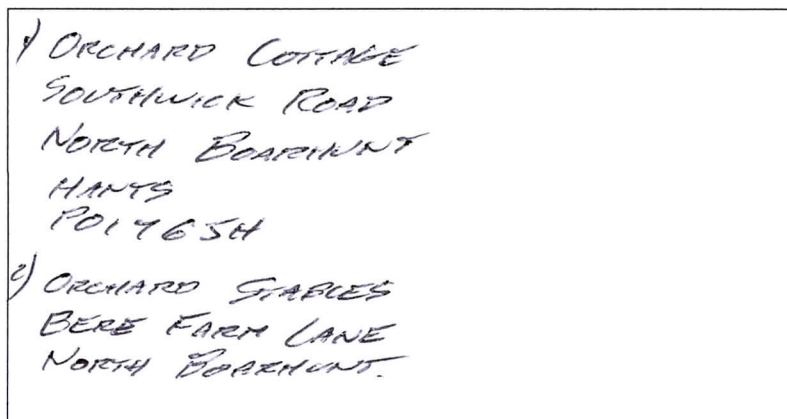 1) ORCHARD COTTAGE
SOUTHWICK ROAD
NORTH BOARHUNT
HANTS
PO17 6JH
2) ORCHARD STABLES
BERE FARM LANE
NORTH BOARHUNT.